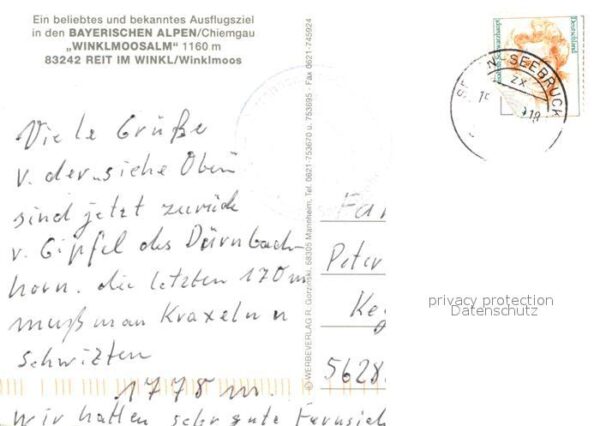 Ein beliebtes und bekanntes Ausflugsziel
in den BAYERISCHEN ALPEN/Chiemgau
„WINKLMOOSALM" 1160 m
83242 REIT IM WINKL/Winklmoos
Viele Grüße
v. der „siehe Oben
sind jetzt zurück
v. Gipfel des Dürnbach-
horn. die letzten 170 m
muß man Kraxeln u
schwitzten
1778 m.
Wir hatten sehr gute Fernsich
© WERBEVERLAG R. Gorzinski, 68305 Mannheim, Tel. 0621-753670 u. 753695 · Fax 0621-745924
Fa
Peter
Ke
5628
Deutschland
SEEBRUCK
zx
privacy protection
Datenschutz